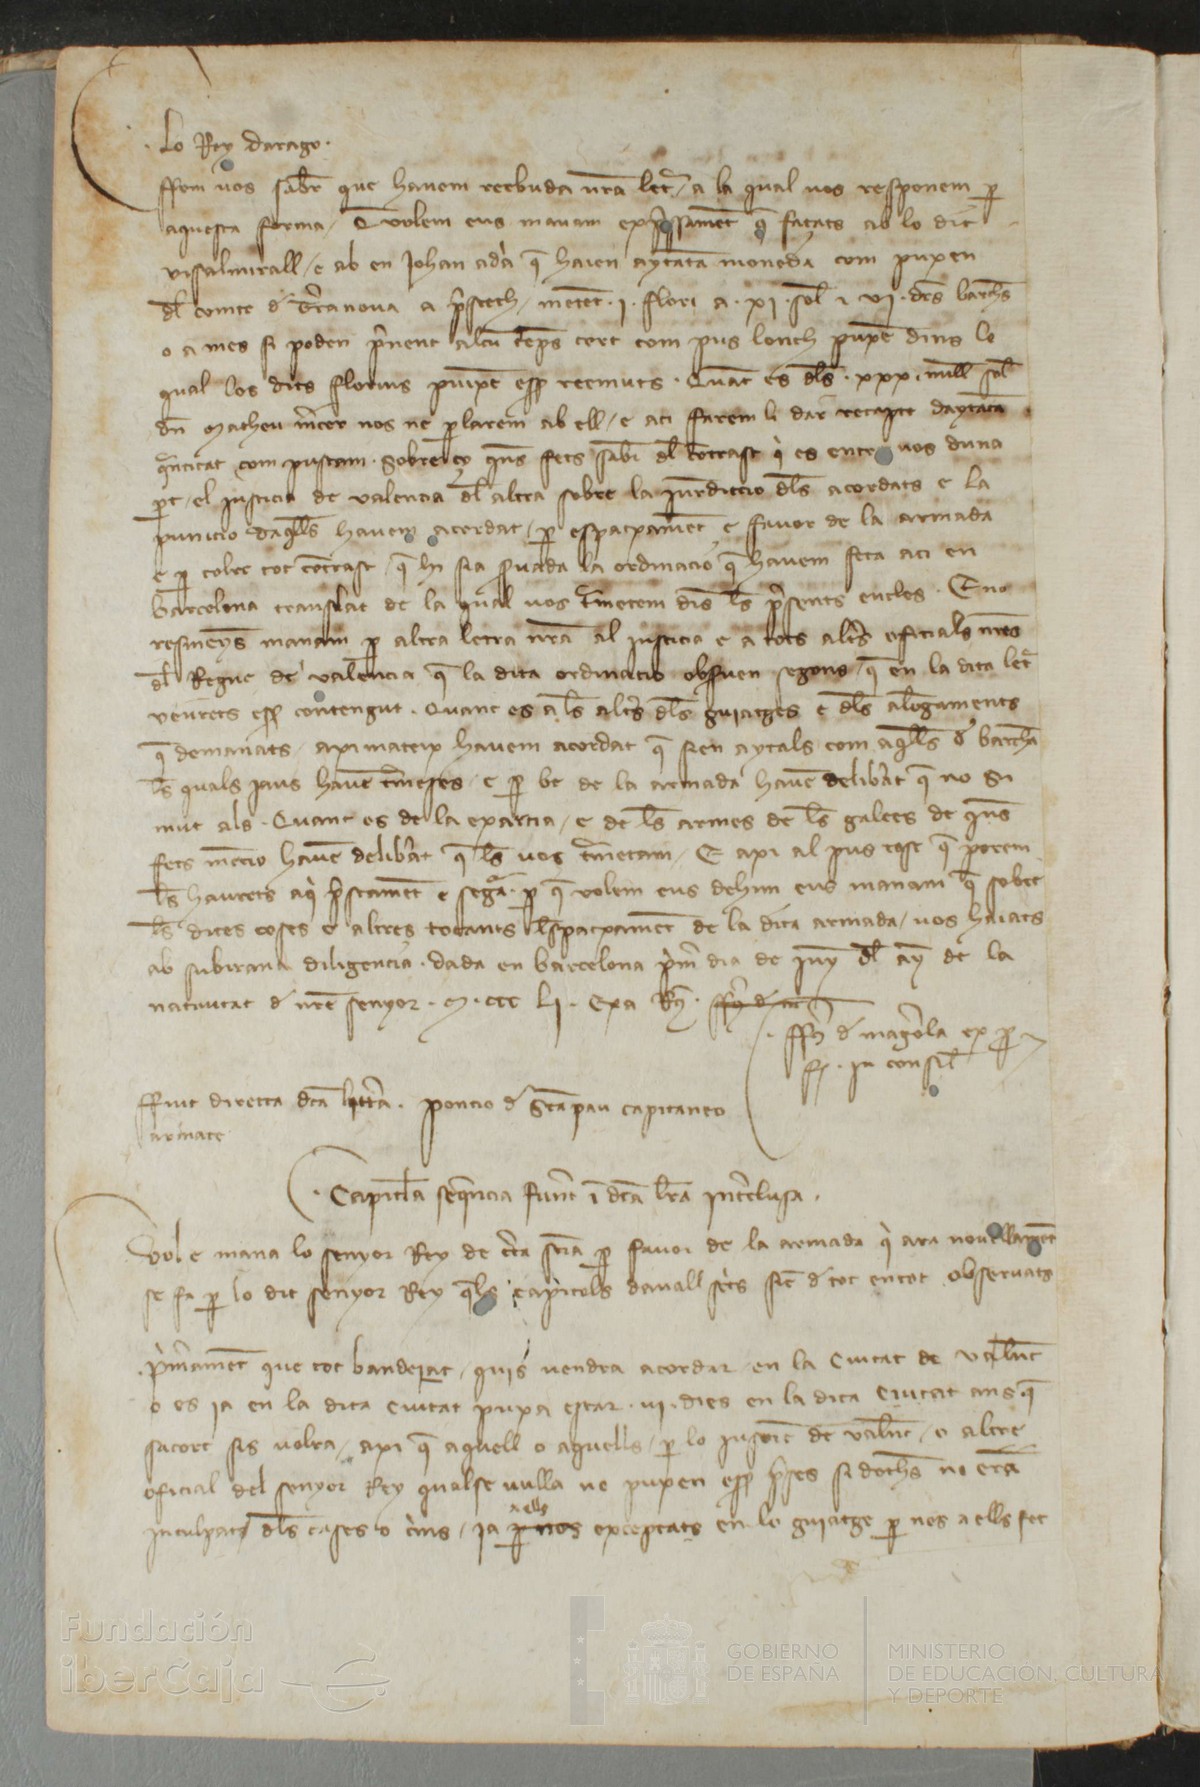 Lo Rey darago.
ffem vos saber que havem reebuda vrã letr̃a / a la qual vos responem p
aquesta forma / E volem eus manam expressament q̃ façats ab lo dit
visalmirall / e ab en Johan adà q̃ haien aytãta moneda com puxen
dl comte d Trãnova a prestech / metẽt .i. flori a .xi. sol ι vi. drs barchs
o a mes si poden prenent alcũ temps cert com pus lonch puxẽ dins lo
qual los dits florins puixẽ ess remuts . Quãt es dls .xxx. mill sol
dñ Matheu mercer nos ne plarem ab ell / e aci farem li dar recapte daytãta
quãtitat com puscam . Sobre ço quins fets saber dl cõtrast q̃ es entre vos duna
pt / el justicia de valencia dl altra sobre la jurdiccio dls acordats e la
punicio daqlls havem acordat / p espatxament e favor de la armada
e p tolre tot cõtrast / q̃ hi sia servada la ordinacio q̃ havem feta aci en
barcelona translat de la qual vos trametem dins ls presents encles . E no
resmenys manam p altra letra nrã al justicia e a tots altrs oficials nres
dl Regne de valencia q̃ la dita ordinacio observen segons q̃ en la dita letr̃a
veurets ess contengut . Quant es a ls altrs dls guiatges e dls alongaments
q̃ demanats / axi mateix havem acordat q̃ sien aytals com aqlls d barchã
ls quals jaus havẽ trameses / e p be de la armada havẽ deliberat q̃ no si
mut als . Quant es de la exarcia / e de ls armes de ls galees de quins
fets mencio havẽ deliberat q̃ ls vos trametam / E axi al pus tost q̃ porem
ls haurets aqi prestament e segura . p q̃ volem eus dehim eus manam q̃ sobre
ls dites coses e altres tocants lespatxament de la dita armada / vos haiats
ab subirana diligencia . dada en barcelona prim dia de juny dl any de la
nativitat d nre senyor . M . ccc Li . Exa Rỹ .
. ffr d magerola ex p
ff . in consil
ffuit directa dcã littera . poncio d Scãpau capitaneo
armate
. Capitla sequencia fuert ĩ dcã lrã interclusa .
Vol e mana lo senyor Rey de cerã sciã p favor de la armada q̃ ara novellament
se fa p lo dit senyor Rey qls capitols davall scrits siẽ d tot en tot observats
. primament que tot bandeiat / quis vendra acordar en la Ciutat de Valenc̃
o es ja en la dita Ciutat puxa estar . vi . dies en la dita Ciutat ans q̃
sacort sis volra / axi q̃ aquell o aquells / p lo justic̃ de Valenc̃ / o altre
oficial del senyor Rey qualse vulla no puxen ess preses si donchs no erã
inculpats dls cases o crims / ja a ells exceptats en lo guiatge p nos a ells fet
Fundación
iberCaja
GOBIERNO
DE ESPAÑA
MINISTERIO
DE EDUCACIÓN, CULTURA
Y DEPORTE